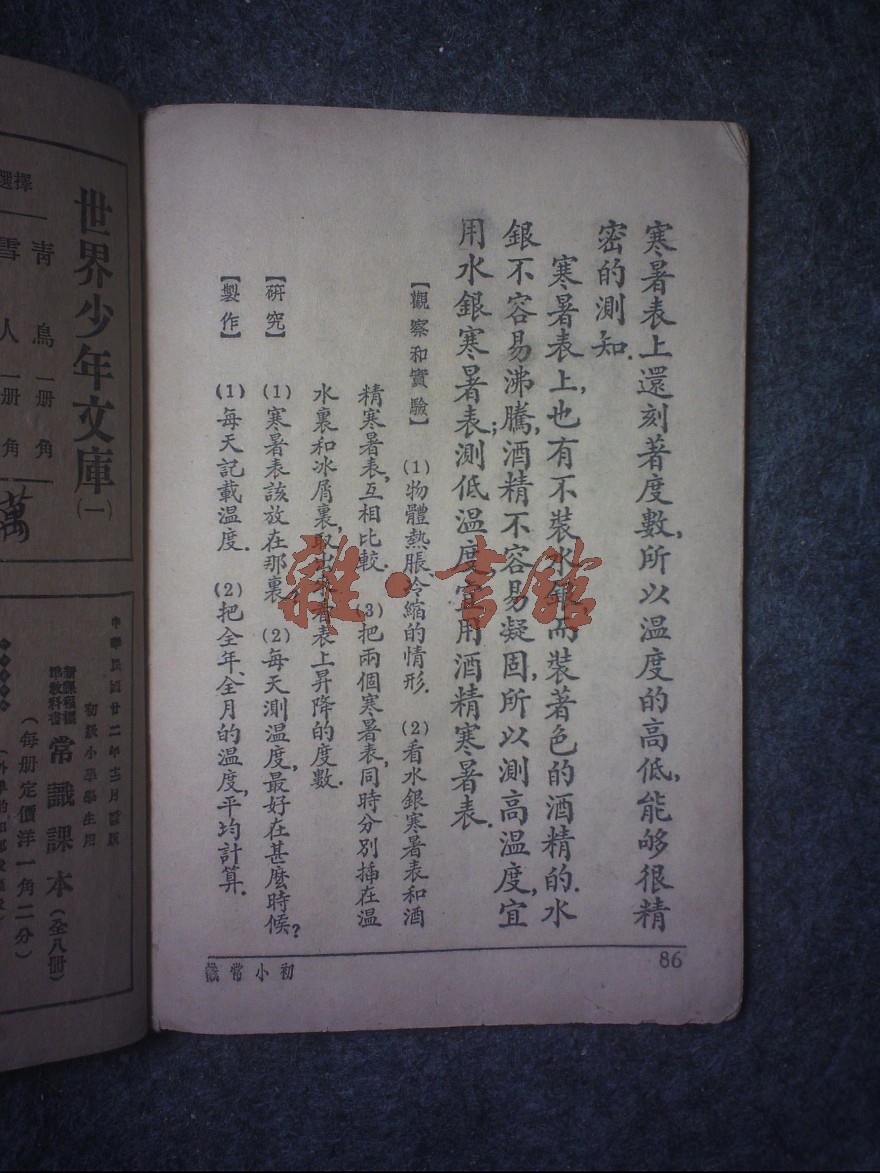 寒暑表上還刻著度數,所以温度的高低,能够很精
密的測知.
寒暑表上,也有不裝水銀,而裝著色的酒精的.水
銀不容易沸騰;酒精不容易凝固,所以測高温度,宜
用水銀寒暑表;測低温度,宜用酒精寒暑表.
【觀察和實驗】 (1)物體熱脹、冷縮的情形. (2)看水銀寒暑表和酒
精寒暑表,互相比較. (3)把兩個寒暑表,同時分別插在温
水裏和冰屑裏,取出看表上昇降的度數.
【研究】 (1)寒暑表該放在那裏? (2)每天測温度,最好在甚麼時候?
【製作】 (1)每天記載温度. (2)把全年、全月的温度,平均計算.
86
初小常識
雜·書館
選擇
青鳥 一册 角
雪人 一册 角
世界少年文庫(一)
萬
中華民國廿二年十二月 版
初級小學學生用
新課程標
準教科書
常識課本(全八册)
(每册定價洋一角二分)